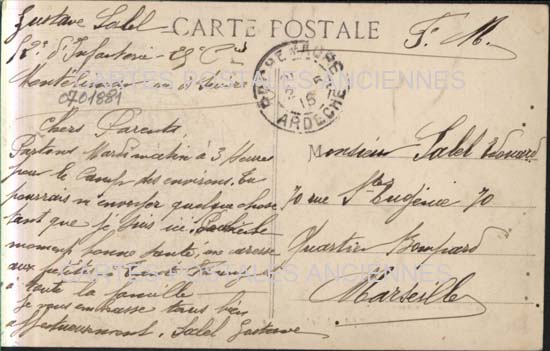 Gustave Salel
CARTE POSTALE
F. M.
d'Infanterie
0701881
ARDECHE
15
Chers Parents,
Partons Mardi matin à 3 heures
pour le Camp des environs. Tu
pourrais m'envoyer quelque chose
tant que je suis ici.
moment bonne santé,
aux petites
à toute la famille
Je vous embrasse tous bien
affectueusement. Salel Gustave
Monsieur Salel Edouard
70 rue Ste Eugénie 70
Quartier Bompard
Marseille
CARTES POSTALES ANCIENNES
CARTES POSTALES ANCIENNES